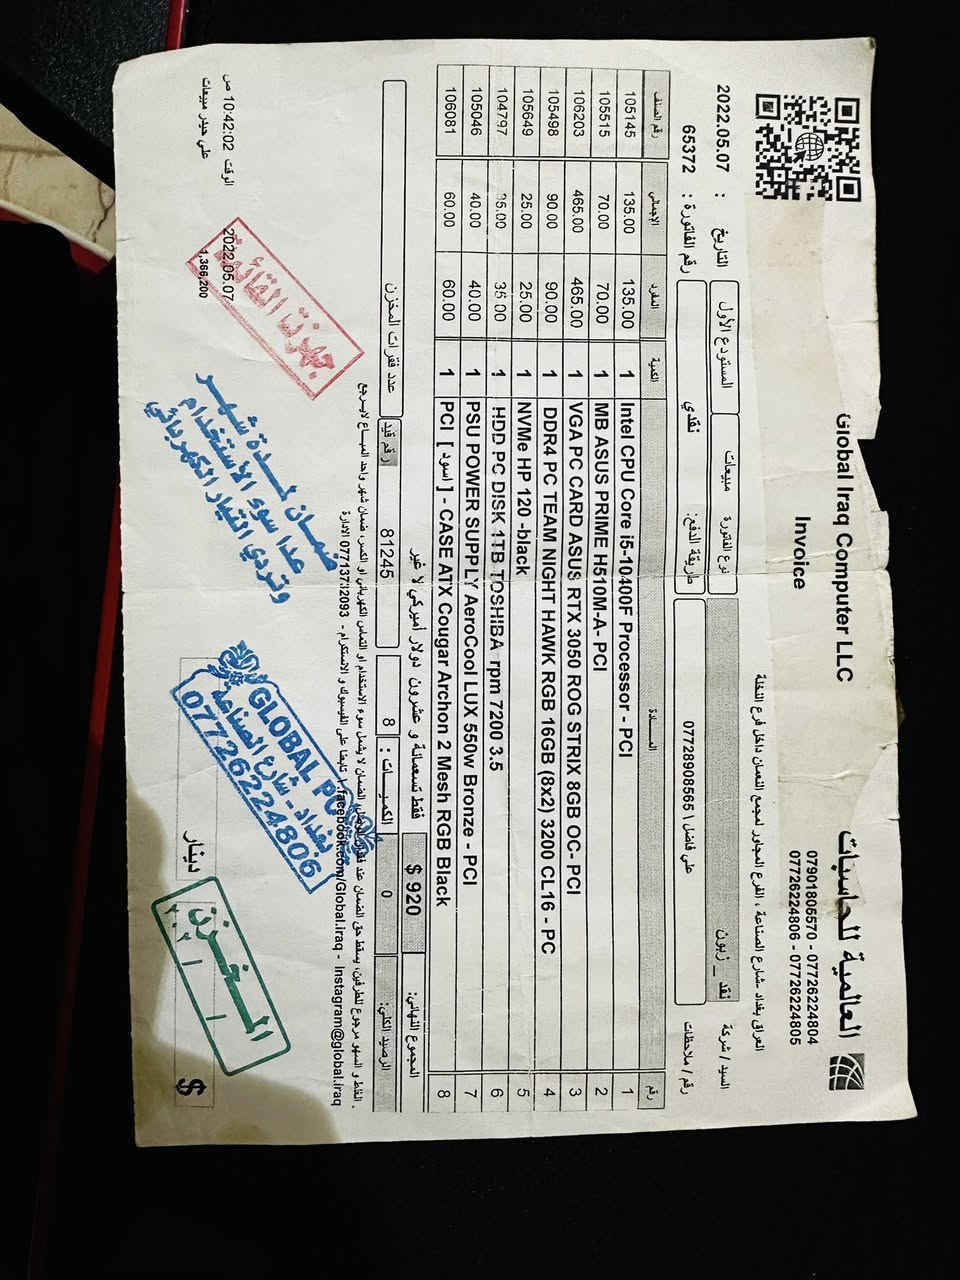 Global Iraq Computer LLC
العالمية للحاسبات
Invoice
07901805570 - 07726224804
07726224806 - 07726224805
العراق بغداد -شارع الصناعة ، الفرع المجاور لمجمع النعمان داخل فرع النخلة
السيد / شركة نقد _ زبون نوع الفاتورة مبيعات المستودع الأول التاريخ : 2022.05.07
رقم / ملاحظات علي فاضل \ 07728908565 طريقة الدفع: نقدي رقم الفاتورة : 65372
رقم المـــادة الكمية المفرد الإجمالي رقم الصنف
1 Intel CPU Core i5-10400F Processor - PCI 1 135.00 135.00 105145
2 MB ASUS PRIME H510M-A- PCI 1 70.00 70.00 105515
3 VGA PC CARD ASUS RTX 3050 ROG STRIX 8GB OC- PCI 1 465.00 465.00 106203
4 DDR4 PC TEAM NIGHT HAWK RGB 16GB (8x2) 3200 CL16 - PC 1 90.00 90.00 105498
5 NVMe HP 120 -black 1 25.00 25.00 105649
6 HDD PC DISK 1TB TOSHIBA rpm 7200 3.5 1 35.00 35.00 104797
7 PSU POWER SUPPLY AeroCool LUX 550w Bronze - PCI 1 40.00 40.00 105046
8 PCI [ اسود ] - CASE ATX Cougar Archon 2 Mesh RGB Black 1 60.00 60.00 106081
المجموع النهائي: $ 920 فقط تسعمائة و عشرون دولار أميركي لا غير
الرصيد الكلي: 0 الكميات : 8 رقم قيد 81245 عدد فقرات المخزن
facebook.com/Global.iraq - Instagram@global.iraq
جهزت القائمة
ضمان لمدة شهر
عدا سوء الاستخدام
وتردي التيار الكهربائي
بغداد - شارع الصناعة
07726224806
المخزن
دينار
$
2022.05.07
1,366,200
الوقت 10:42:02 ص
علي حيدر مبيعات